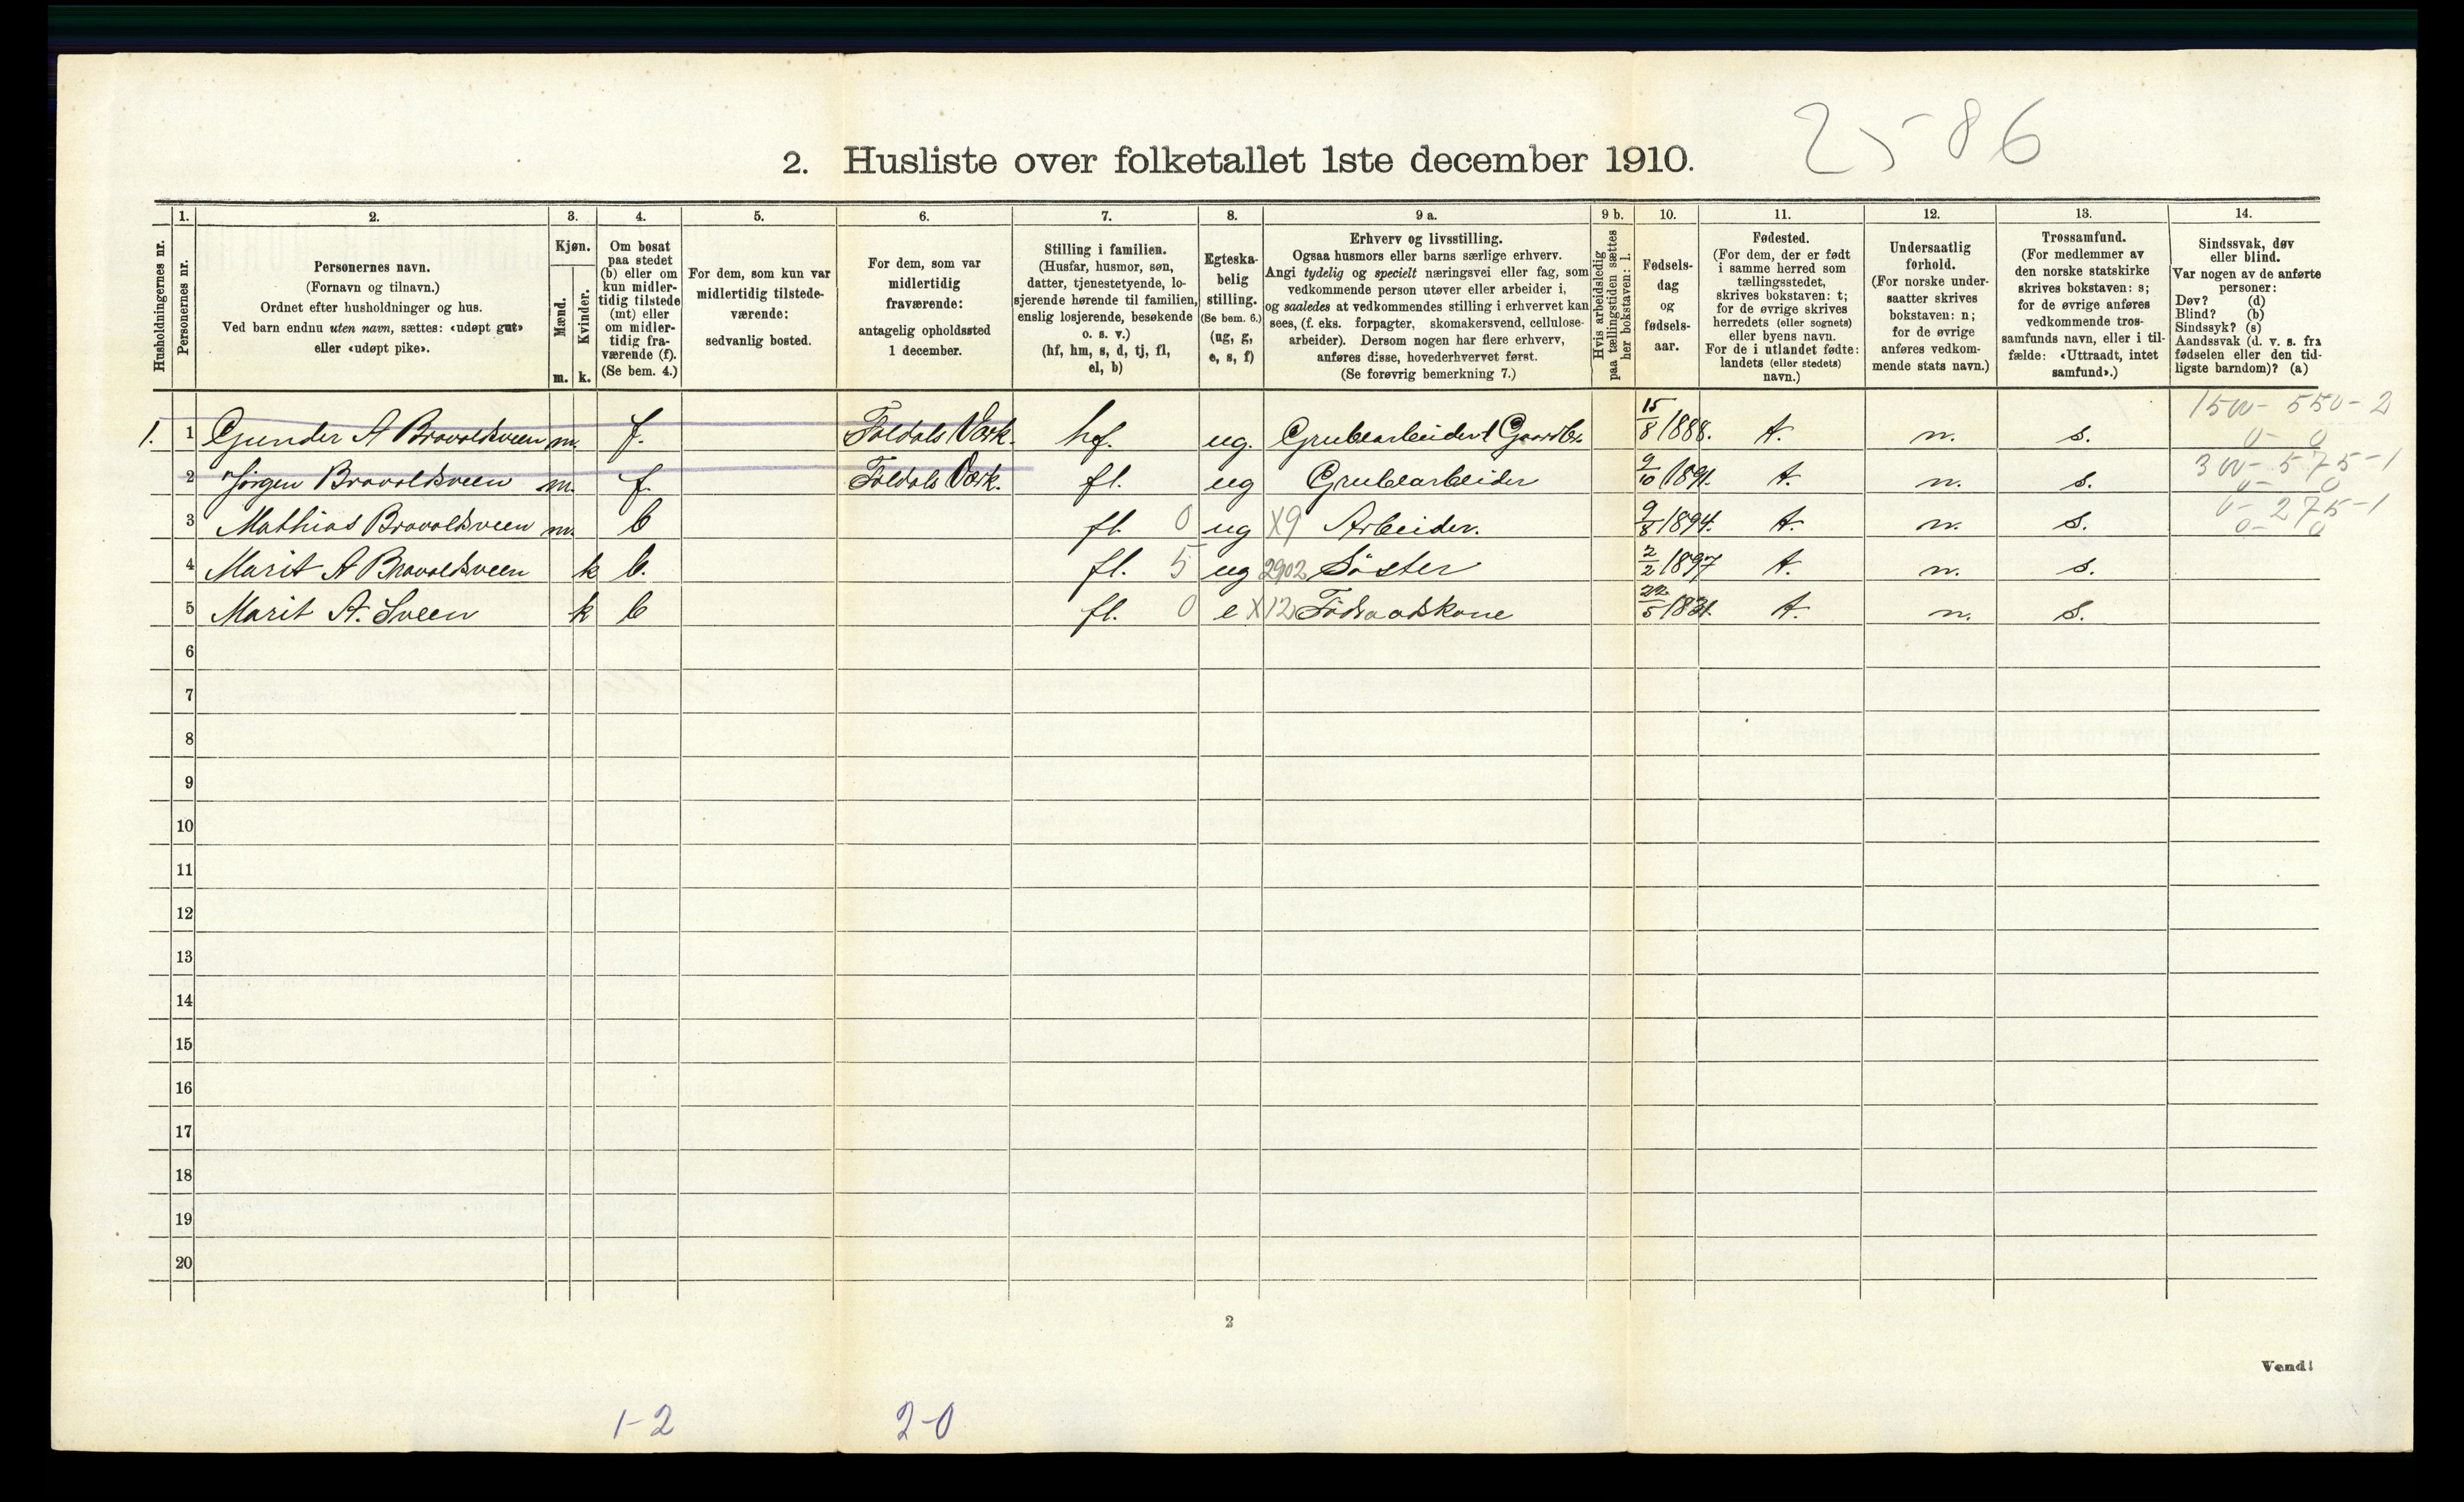 2586
2. Husliste over folketallet 1ste december 1910.
Husholdningernes nr.
1.
Personernes nr.
2.
Personernes navn.
(Fornavn og tilnavn.)
Ordnet efter husholdninger og hus.
Ved barn endnu uten navn, sættes: «udøpt gut»
eller «udøpt pike».
3.
Kjøn.
Mænd.
Kvinder.
m. k.
4.
Om bosat
paa stedet
(b) eller om
kun midler-
tidig tilstede
(mt) eller
om midler-
tidig fra-
værende (f).
(Se bem. 4.)
5.
For dem, som kun var
midlertidig tilstede-
værende:
sedvanlig bosted.
6.
For dem, som var
midlertidig
fraværende:
antagelig opholdssted
1 december.
7.
Stilling i familien.
(Husfar, husmor, søn,
datter, tjenestetyende, lo-
sjerende hørende til familien,
enslig losjerende, besøkende
o. s. v.)
(hf, hm, s, d, tj, fl,
el, b)
8.
Egteska-
belig
stilling.
(Se bem. 6.)
(ug, g,
e, s, f)
9 a.
Erhverv og livsstilling.
Ogsaa husmors eller barns særlige erhverv.
Angi tydelig og specielt næringsvei eller fag, som
vedkommende person utøver eller arbeider i,
og saaledes at vedkommendes stilling i erhvervet kan
sees, (f. eks. forpagter, skomakersvend, cellulose-
arbeider). Dersom nogen har flere erhverv,
anføres disse, hovederhvervet først.
(Se forøvrig bemerkning 7.)
9 b.
Hvis arbeidsledig
paa tællingstiden sættes
her bokstaven: l.
10.
Fødsels-
dag
og
fødsels-
aar.
11.
Fødested.
(For dem, der er født
i samme herred som
tællingsstedet,
skrives bokstaven: t;
for de øvrige skrives
herredets (eller sognets)
eller byens navn.
For de i utlandet fødte:
landets (eller stedets)
navn.)
12.
Undersaatlig
forhold.
(For norske under-
saatter skrives
bokstaven: n;
for de øvrige
anføres vedkom-
mende stats navn.)
13.
Trossamfund.
(For medlemmer av
den norske statskirke
skrives bokstaven: s;
for de øvrige anføres
vedkommende tros-
samfunds navn, eller i til-
fælde: «Uttraadt, intet
samfund».)
14.
Sindssvak, døv
eller blind.
Var nogen av de anførte
personer:
Døv? (d)
Blind? (b)
Sindssyk? (s)
Aandssvak (d. v. s. fra
fødselen eller den tid-
ligste barndom)? (a)
1500-550-2
1. 1 Gunder A Bravoldsveen m. f. Foldals Værk. hf. ug. Grubearbeider & Gaardbr. 15/8 1888. t. n. s. 0-0
2 Jørgen Bravoldsveen m. f. Foldals Værk. fl. ug Grubearbeider 9/10 1891. t. n. s. 300-575-1 0-0
3 Mathias Bravoldsveen m. b fl. 0 ug X9 Arbeider. 9/8 1894. t. n. s. 0-275-1 0-0
4 Marit A Bravoldsveen k b. fl. 5 ug 2902 Søster 2/2 1897 t. n. s.
5 Marit A. Sveen k b fl. 0 e X12 Føderaadskone 22/5 1831. t. n. s.
6
7
8
9
10
11
12
13
14
15
16
17
18
19
20
2
Vend!
1-2 2-0